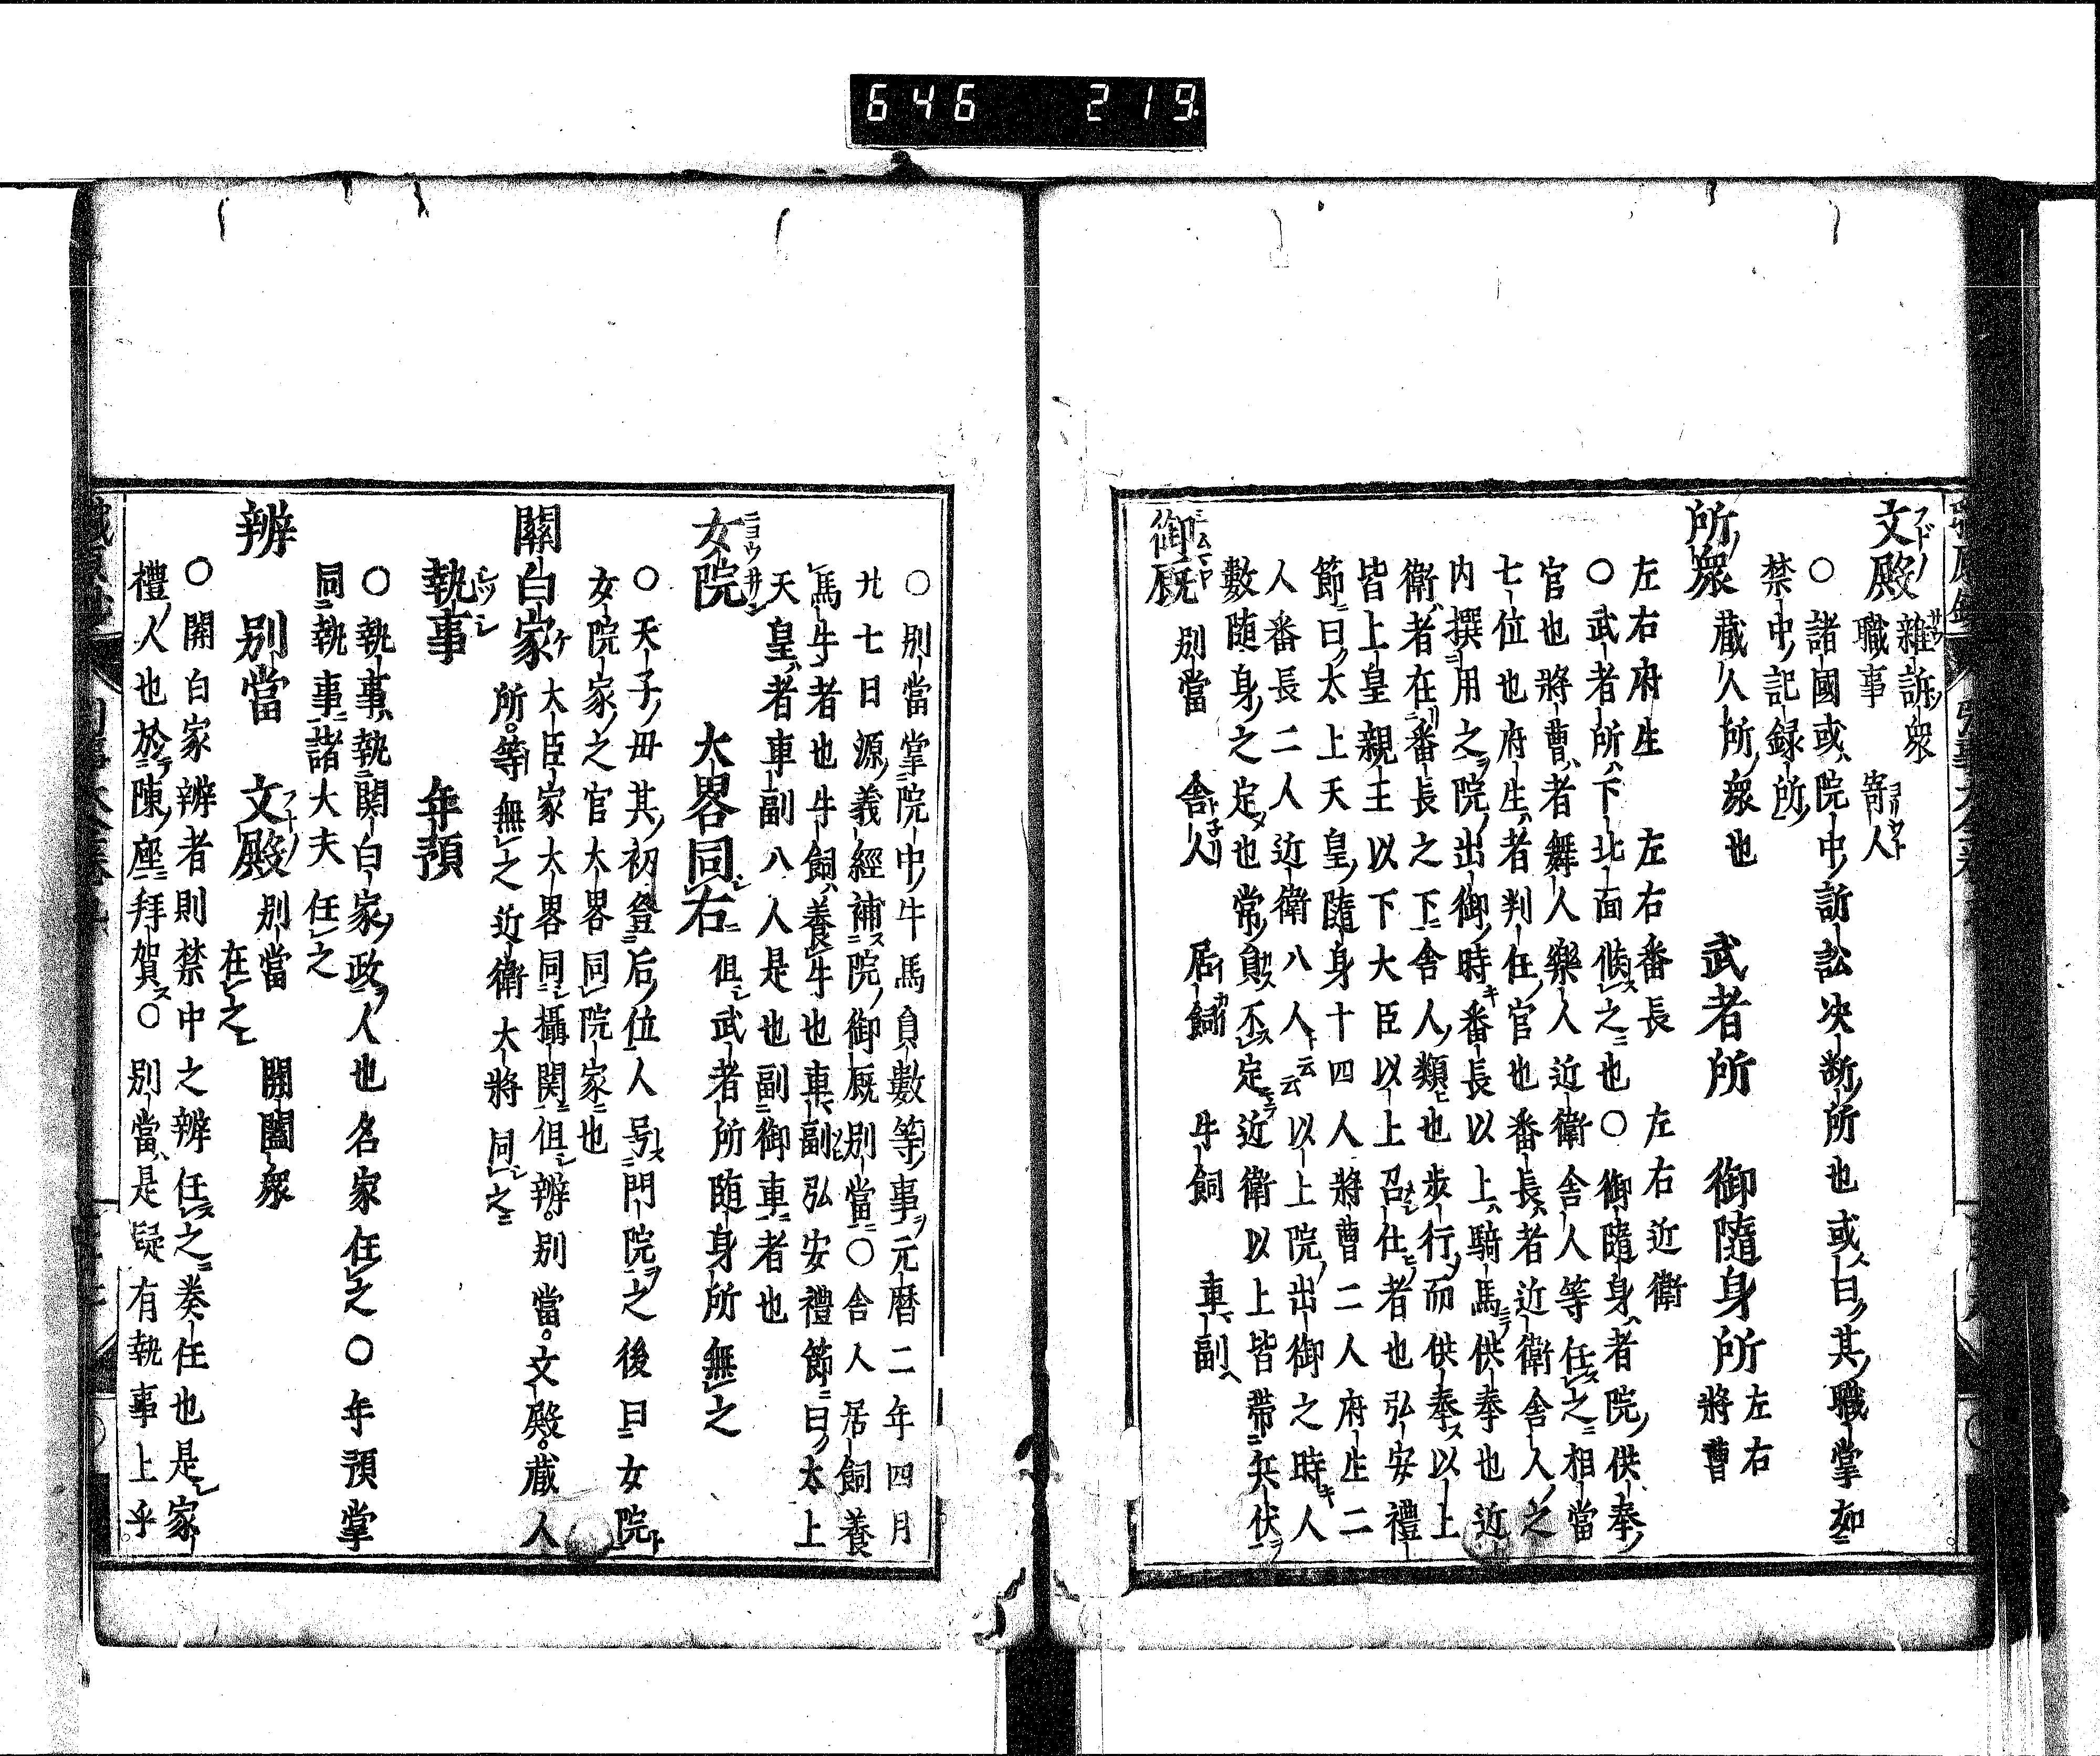 646 219
文殿 雜訴衆 寄人
職事
○諸國或院中訪訟决断所也或曰其職掌如
禁中記録所
所衆 蔵人所衆也 武者所 御隨身所 左右將曹
左右府生 左右番長 左右近衛
○武者所下北面候之也○御隨身者院供奉
官也將曹者舞人樂人近衛舎人等任之相當
七位也府生者判任官也番長者近衛舎人之
内撰用之院出御時番長以上騎馬供奉也近
衛者在番長之下舎人類也歩行而供奉以上
皆上皇親王以下大臣以上召仕者也弘安禮
節曰太上天皇隨身十四人將曹二人府生二
人番長二人近衛八人云云以上院出御之時人
數随身之定也常員不定近衛以上皆帯兵伏
御厩 別當 舎人 居飼 牛飼 車副
○別當掌院中牛馬員數等事元暦二年四月
廿七日源義經補院御厩別當○舎人居飼養
馬牛者也牛飼養牛也車副弘安禮節曰太上
天皇者車副八人是也副御車者也
女院 大畧同右 但武者所随身所無之
○天子毋其初登后位人号門院之後曰女院
女院家之官大畧同院家也
關白家 大臣家大畧同攝関但辨。別當。文殿。蔵人
所。等無之近衛大將同之
執事 年預
○執事執関白家政人也名家任之○年預掌
同執事諸大夫任之
辨 別當 文殿 別當在之 開闔 衆
○関白家辨者則禁中之辨任之奏任也是家
禮人也於陳座拜賀○別當是疑有執事上乎